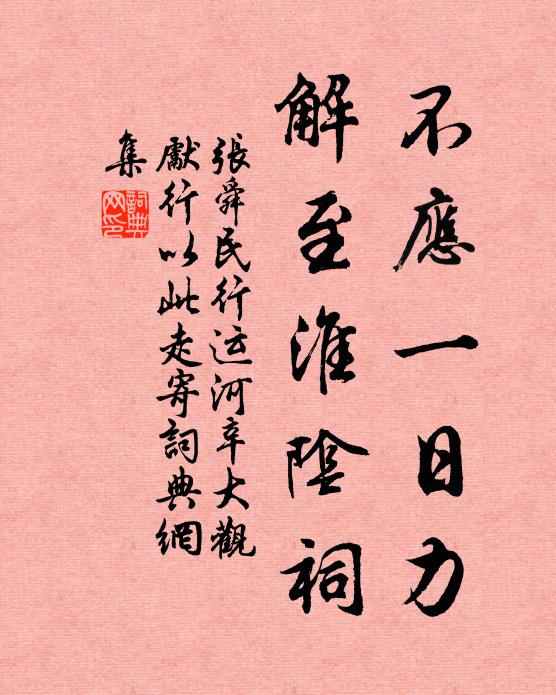 不應一日力
解至淮陰祠
張舜民行运河辛大觀
獻行以此走寄詞典網
集
詞典网印